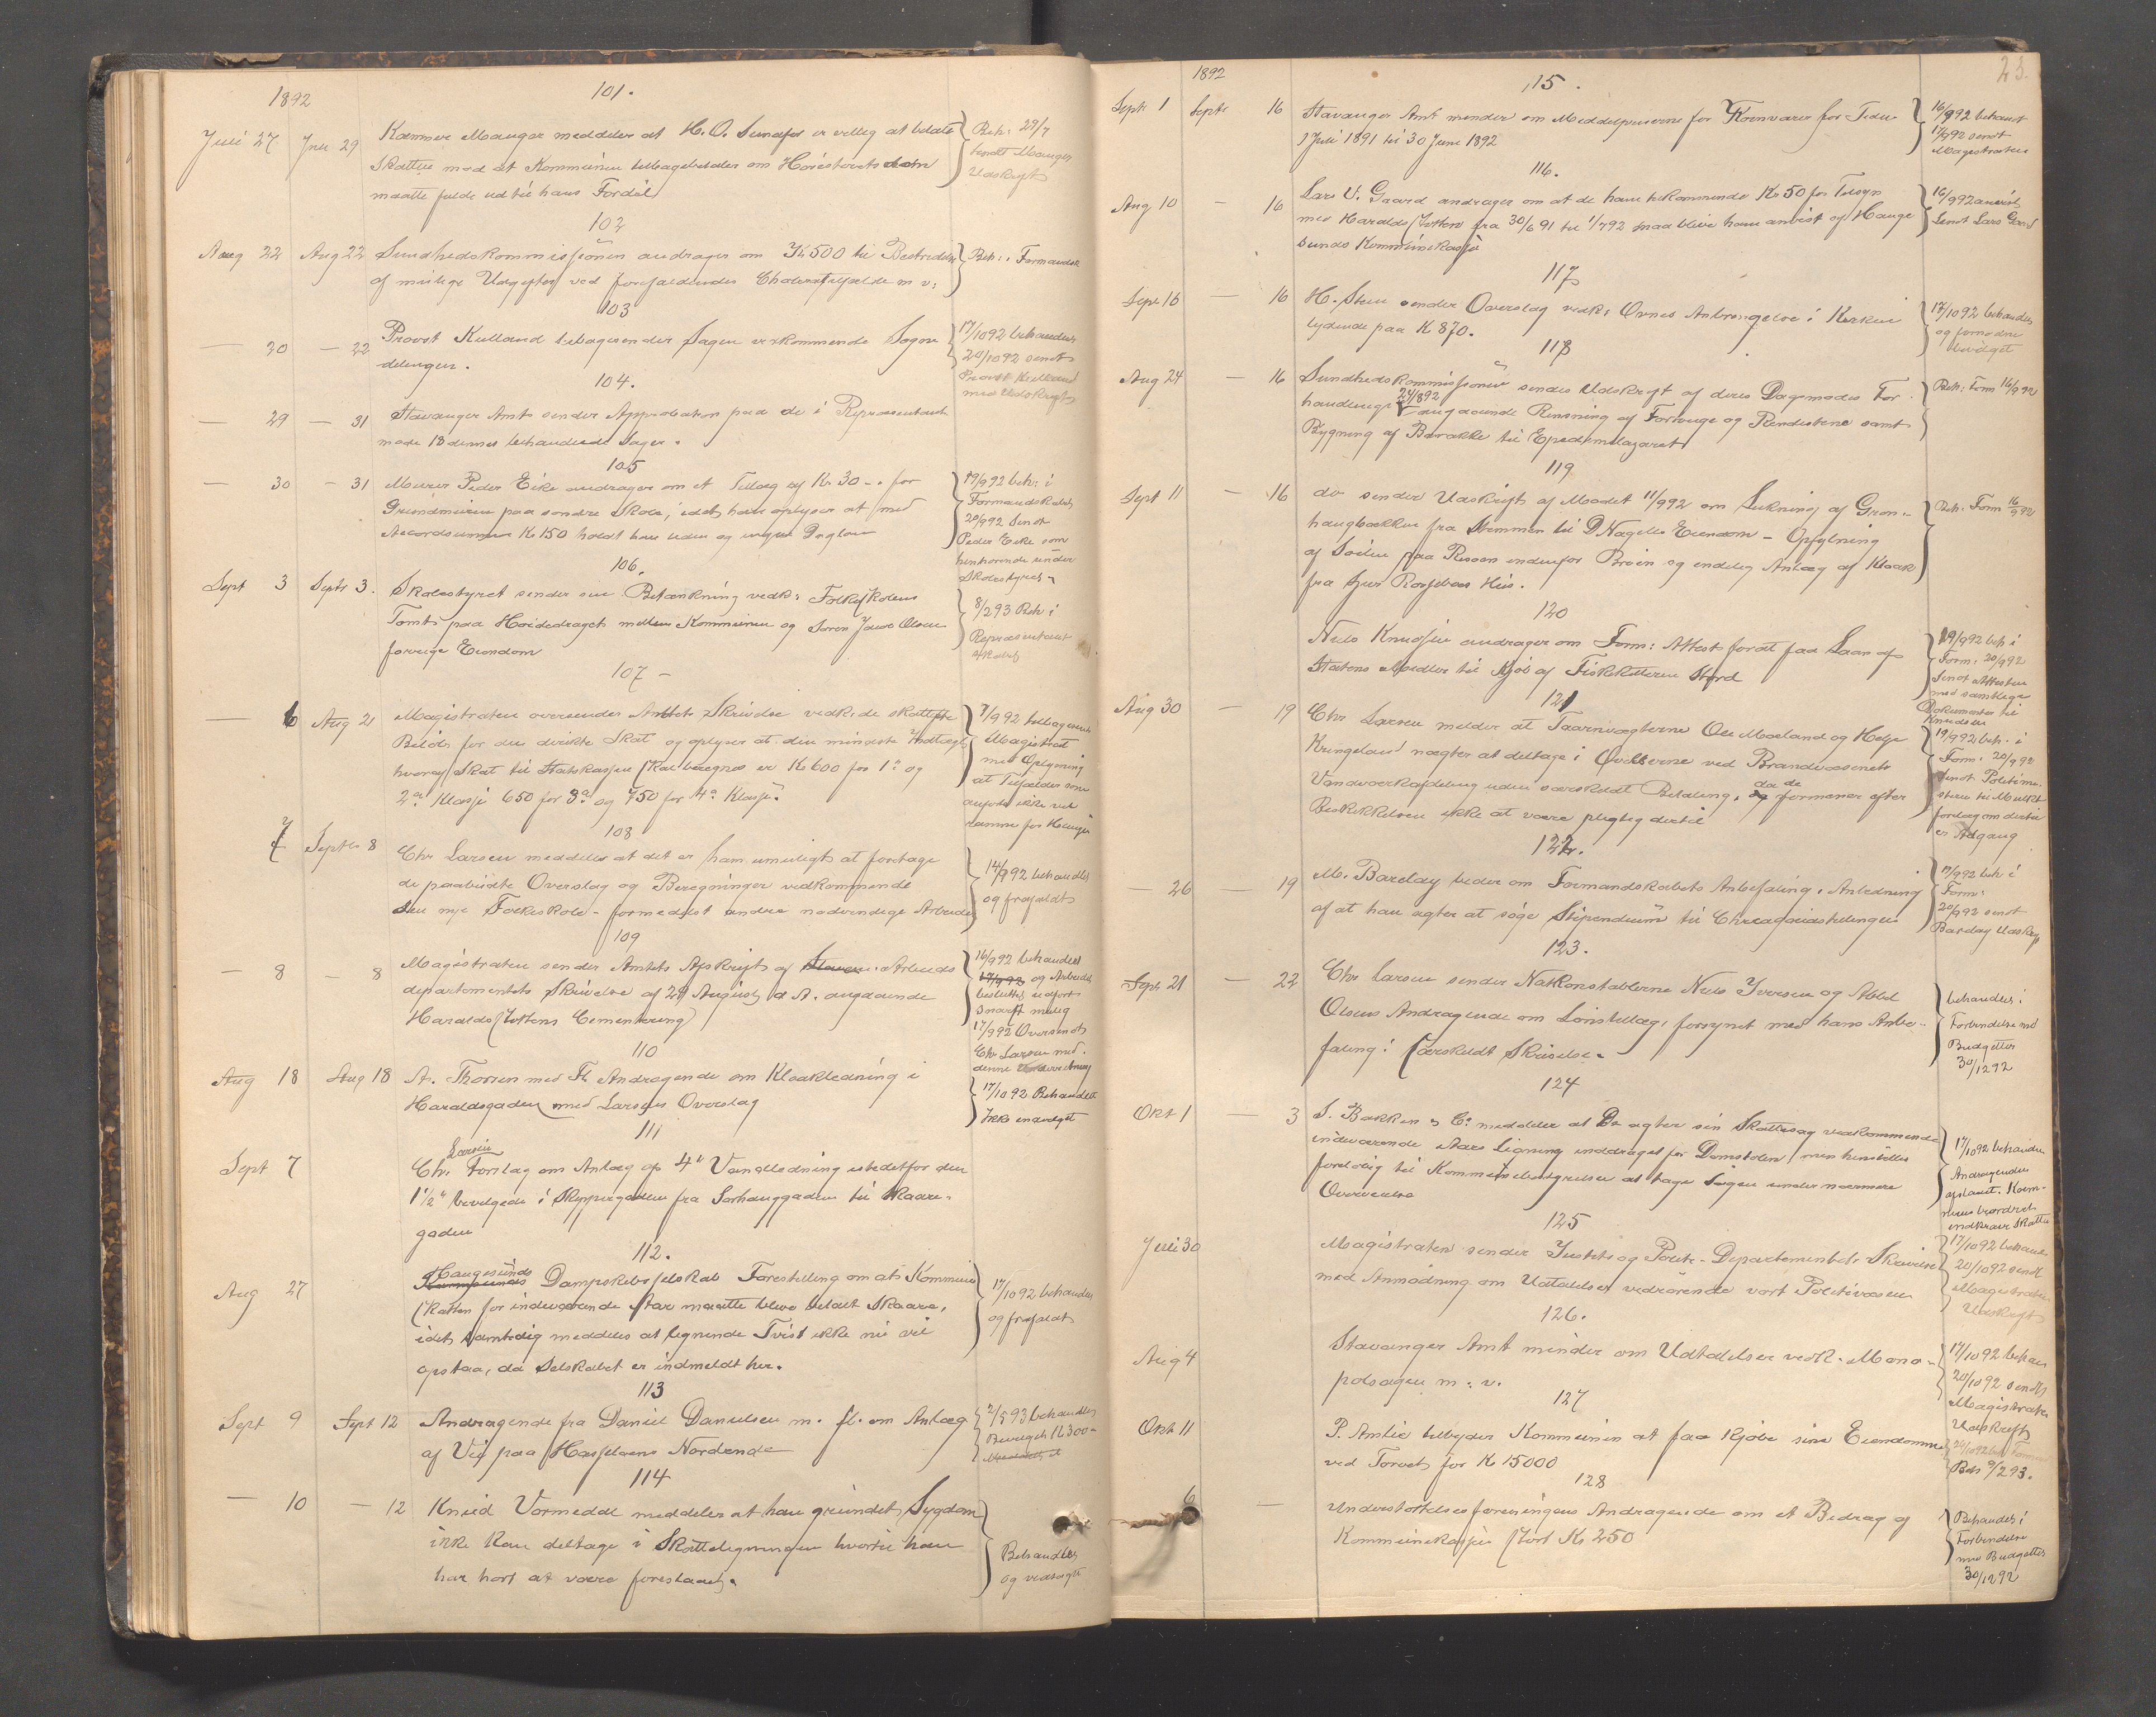 1892
101.
Juli 27 Juli 29 Kæmner Mauger meddeler at H. O. Sundfør er villig at betale
Skatten mod at Kommunen tilbagebetaler om Høiesteretsdom
maatte falde ud til hans Fordel
Beh: 29/7
sendt Mauger
Udskrift
102
Aug 22 Aug 22 Sundhedskommissionen andrager om K 500 til Bestridelse
af mulige Udgifter ved forefaldende Choleratilfælde m v:
Beh: Formandsk
103
— 20 — 22 Provst Kielland tilbagesender Sagen vedkommende Sogne
delingen.
17/1092 behandles
20/1092 sendt
Provst Kielland
med Udskrift
104.
— 29 — 31 Stavanger Amt sender Approbation paa de i Repræsentant
møde 18 dennes behandlede Sager.
105
— 30 — 31 Murer Peder Eike andrager om et Tillæg af Kr 30 -. for
Grundmuren paa søndre Skole, idet han oplyser at med
Accordsummen K 150 holdt han uden og ingen Dagløn
19/992 beh: i
Formandskabet
20/992 Sendt
Peder Eike som
henhørende under
Skolestyret
106.
Sept 3 Septr 3. Skolestyret sender sin Betænkning vedk: Folkeskolens
Tomt paa Høidedraget mellem Kommunen og Søren Olsens
forrige Eiendom
8/293 Beh i
Repræsentant
skabet
107 -
— 6 Aug 21 Magistraten oversender Amtets Skrivelse vedk: de skattefrie
Beløb for den direkte Skat og oplyser at den mindste Indtægt
hvoraf Skat til Statskassen skal beregnes er K 600 for 1ste og
2den Klasse 650 for 3die og 750 for 4de Klasse.
7/992 tilbagesendt
Magistrat
med Oplysning
at Tilfældet som
anført ikke vil
ramme for Hauges
108
7 Septbr 8 Chr Larsen meddeler at det er ham umuligt at foretage
de paabudte Overslag og Beregninger vedkommende
den nye Folkeskole - formedelst andre nødvendige Arbeider
14/992 behandles
og frafaldt
109
— 8 — 8 Magistraten sender Amtets Afskrift af Arbeids
departementets Skrivelse af 29 August d A. angaaende
Haraldsstøttens Cementering
16/992 behandlet
17/992 og Arbeidet
besluttet udført
snarest mulig
17/992 Oversendt
Chr Larsen med
denne
110
Aug 18 Aug 18 A. Thorsen med Fl. Andragende om Kloakledning i
Haraldsgaden med Larsens Overslag
17/1092 Behandlet
Ikke indvilget
111
Sept 7 Chr. Larsen Forslag om Anlæg af 4" Vandledning istedetfor den
1 1/2" bevilgede i Skippergaden fra Sørhauggaden til Skaare-
gaden
112.
Aug 27 Haugesunds Dampskibsselskab Forestilling om at Kommune
skatten for indeværende Aar maatte blive betalt Skaare,
idet samtidig meddeles at lignende Tvist ikke nu vil
opstaa, da Selskabet er indmeldt her.
17/1092 behandles
og frafaldt
113
Sept 9 Sept 12 Andragende fra Daniel Danielsen m. fl. om Anlæg
af Vei paa Hasseløens Nordende
2/593 behandles
Bevilget K 300 -
114
— 10 — 12 Knud Vormedal meddeler at han grundet Sygdom
ikke kan deltage i Skatteligningen hvortil han
har hørt at være foreslaaet.
Behandlet
og vedtaget
23.
1892
115.
Septr 1 Septr 16 Stavanger Amt minder om Meddelpriserne for Kornvarer for Tiden
1 Juli 1891 til 30 Juni 1892
16/992 behandl
17/992 sendt
Magistraten
116.
Aug 10 — 16 Lars V. Gaard andrager om at de ham tilkommende Kr 50 for Tilsyn
med Haraldsstøtten fra 30/6 91 til 1/792 maa blive ham anvist af Hauge
sunds Kommunekasse
16/992 anvist
Sendt Lars Gaard
117
Sept 16 — 16 H. Steen sender Overslag vedk: Ovnes Anbringelse i Kirken
lydende paa K 870.
17/1092 behandles
og fornøden
bevilget
118
Aug 24 — 16 Sundhedskommissionen sender Udskrift af deres Dagsmødes For
handlinger 24/892 angaaende Rensning af Fortouge og Rendestene samt
Bygning af Barakke til Epedemilazaret
Beh: Form 16/992
119
Sept 11 — 16 do sender Udskrift af Mødet 11/992 om Lukning af Grøn-
haugbækken fra Stemmen til D Nagells Eiendom - Opfylning
af Søilen paa Risøen indenfor Broen og endelig Anlæg af Kloak
fra Hus.
Beh: Form 16/992
120
Nils Knudsen andrager om Form: Attest for at faa Laan af
Statens Midler til Kjøb af Fiskekutteren Stord
19/992 beh i
Form: 20/992
Sendt Attesten
med samtlige
Dokumenter til
Knudsen
121
Aug 30 — 19 Chr Larsen melder at Taarnvægterne Ole Mæland og Helge
Kringeland nægter at deltage i Øvelserne ved Brandvæsenets
Vandværksafdeling uden særskildt Betaling, da de formener efter
Beskikkelsen ikke at være pligtig dertil
19/992 beh. i
Form: 20/992
sendt Politime-
steren til Mulkt
forelæg om dertil
er Adgang
122.
— 26 — 19 M. Barclay beder om Formandskabets Anbefaling i Anledning
af at han agter at søge Stipendium til Chicagoudstillingen
19/992 beh i
Form:
20/992 sendt
Barclay Udskrift
123.
Sept 21 — 22 Chr Larsen sender Natkonstablerne Nils Iversen og Abbel
Olsens Andragende om Lønstillæg, forsynet med hans Anbe-
faling i særskildt Skrivelse.
behandles i
Forbindelse md
Budgettet
30/1292
124
Okt 1 — 3 S. Bakken & Co meddeler at De agter sin Skattesag vedkommende
indeværende Aars Ligning inddraget for Domstolen, men henstilles
foreløbig til Kommunebestyrelsen at tage Sagen under nærmere
Overveielse
17/1092 behandles
Andragendet
afslaaet. Kæm-
neren beordret
indkræve Skatten
125
Juli 30 Magistraten sender Justits og Politi-Departementets Skrivelse
med Anmodning om Udtalelser vedrørende vort Politivæsen
17/1092 behandl
20/1092 sendt
Magistraten
Udskrift
126.
Aug 4 Stavanger Amt minder om Udtalelser vedk. Mono-
polsagen m. v.
17/1092 behan
20/1092 sendt
Magistraten
Udskrift
127
Okt 11 P. Amlie tilbyder Kommunen at faa Kjøbe sine Eiendomme
ved Torvet for K 15000
Beh 9/293.
128
6 — Understøttelsesforeningens Andragende om et Bidrag af
Kommunekassen stort K 250
Behandles i
Forbindelse
med Budgettet
30/1292